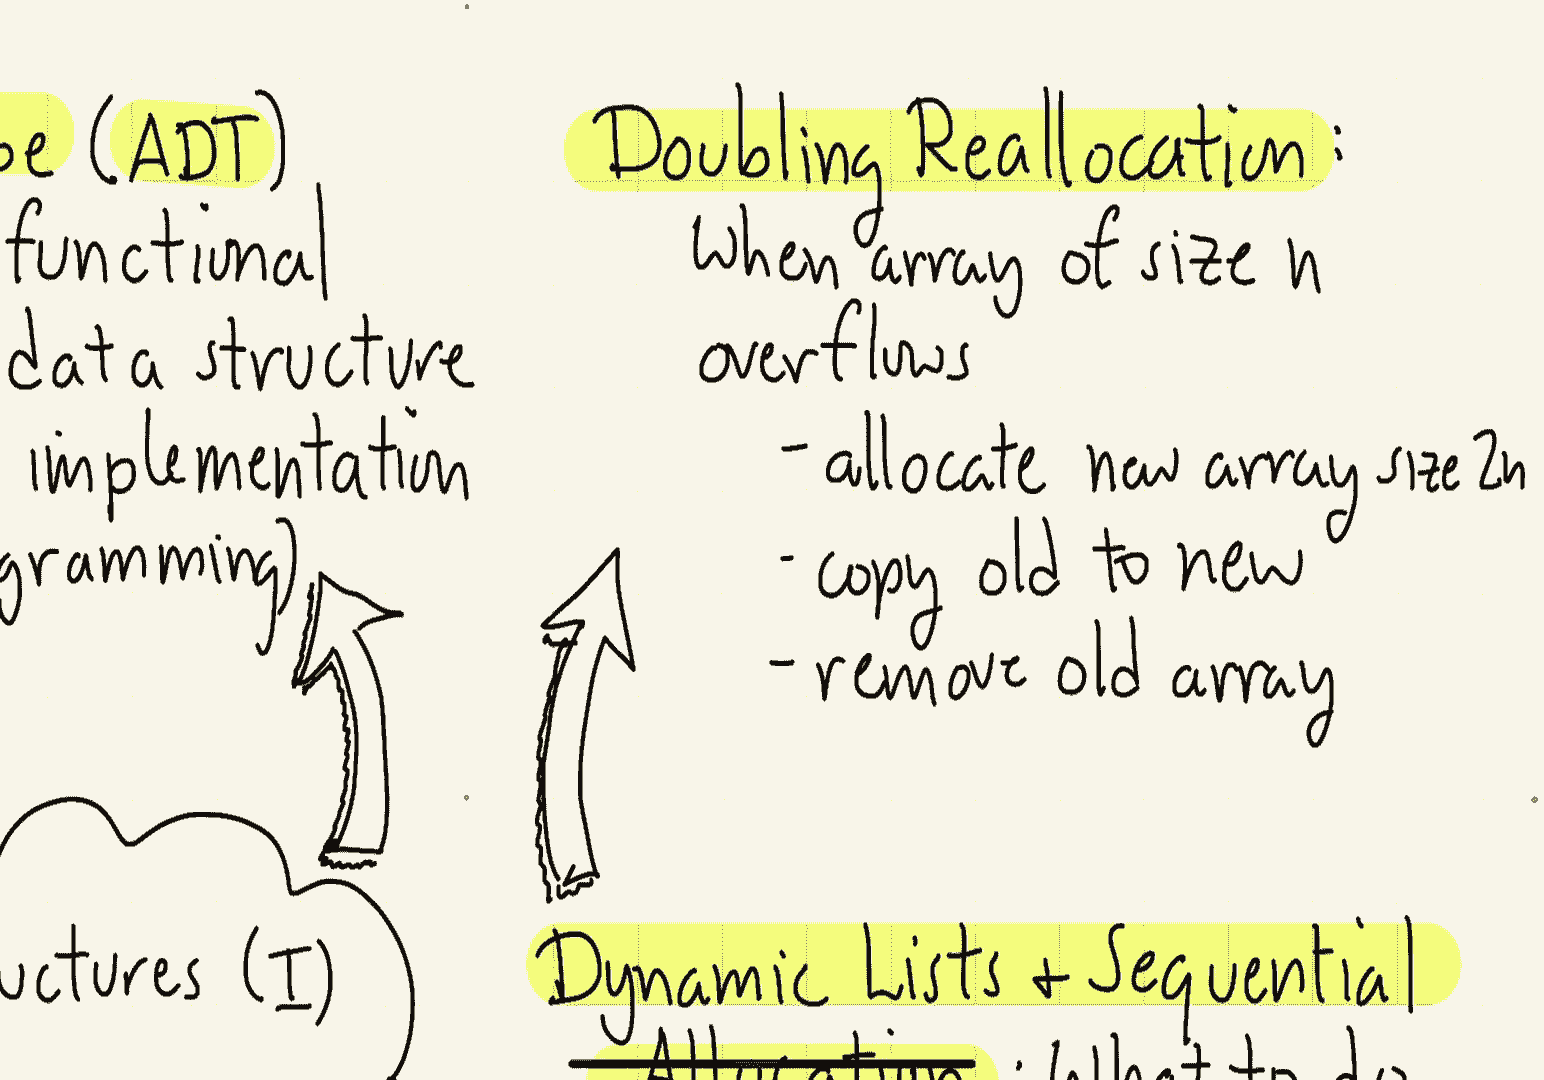 (ADT)
functional
data structure
implementation
gramming)
Doubling Reallocation:
When array of size n
overflows
- allocate new array size 2n
- copy old to new
- remove old array
uctures (I)
Dynamic Lists + Sequential
Allocation: What to do